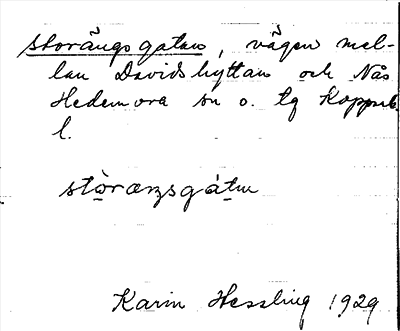 storängsgatan, vägen mel-
lan Davidshyttan och Nås
Hedemora sn o. tg Kopparb.
l.
stòrænsgátɯ
Karin Hessling 1929